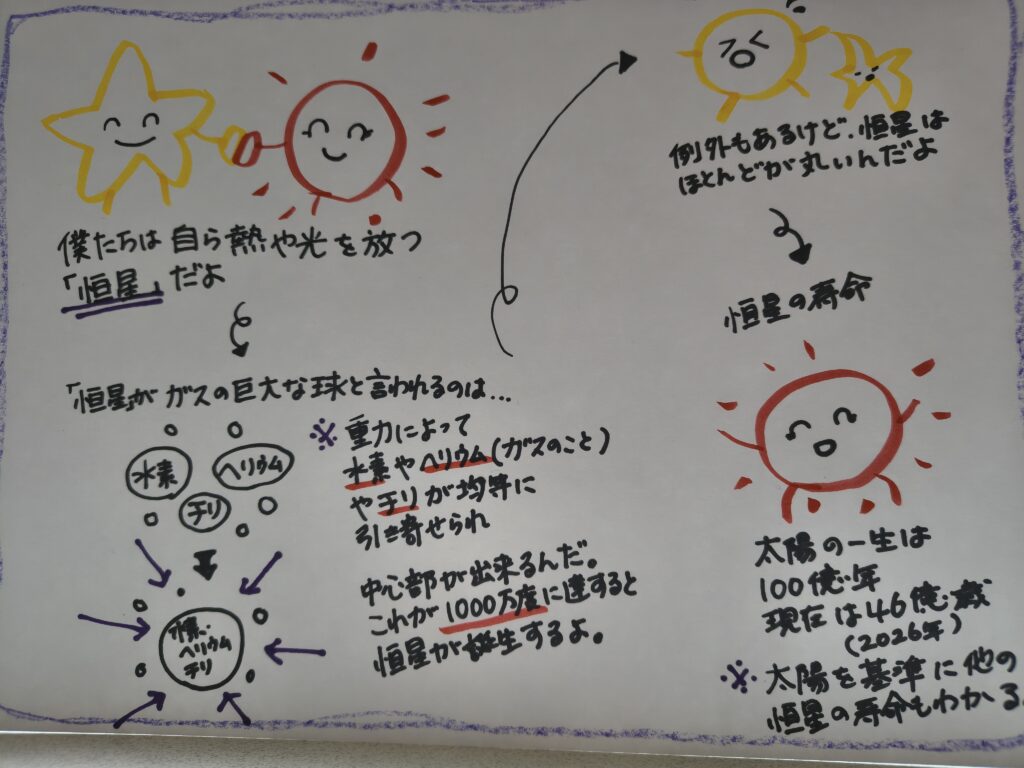 僕たちは自ら熱や光を放つ
「恒星」だよ
「恒星」がガスの巨大な球と言われるのは...
水素
ヘリウム
チリ
水素、
ヘリウム
チリ
※ 重力によって
水素やヘリウム(ガスのこと)
やチリが均等に
引き寄せられ
中心部が出来るんだ。
これが1000万度に達すると
恒星が誕生するよ。
例外もあるけど、恒星は
ほとんどが丸いんだよ
恒星の寿命
太陽の一生は
100億年
現在は46億歳
(2026年)
※ 太陽を基準に他の
恒星の寿命もわかる。